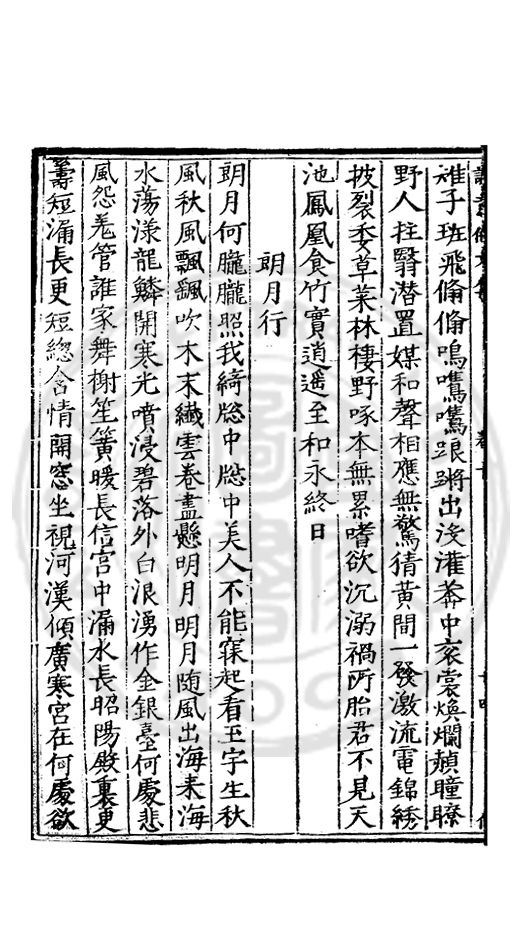 雉子班飛翛翛鳴嘺嘺踉蹡出淺灌莽中衮裳煥爛赬瞳瞭
野人拄翳潛置媒和聲相應無驚猜黃間一發激流電錦綉
披裂委草萊林棲野啄本無累嗜欲沉溺禍所胎君不見天
池鳳凰食竹實逍遥至和永終日
朗月行
朗月何朧朧照我綺牕中牕中美人不能寐起看玉宇生秋
風秋風飄飄吹木末纖雲卷盡懸明月明月隨風出海來海
水蕩漾龍鱗開寒光噴浸碧落外白浪湧作金銀臺何處悲
風怨羌管誰家舞榭笙簧暖長信宫中漏水長昭陽殿裏更
籌短漏長更短總含情開窓坐視河漢傾廣寒宮在何處欲